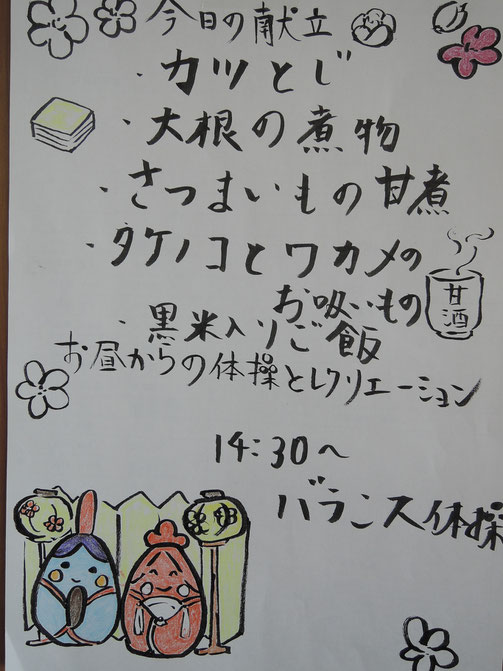 今日の献立
・カツとじ
・大根の煮物
・さつまいもの甘煮
・タケノコとワカメの
お吸いもの
甘酒
・黒米入りご飯
お昼からの体操とレクリエーション
14:30〜
バランス体操